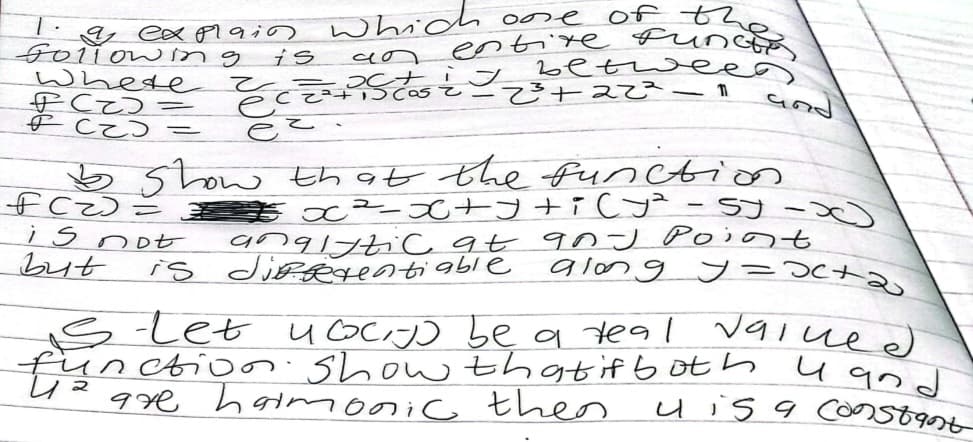 1. a, explain which one of the
following is an entire function
where z = x + iy between
f(z) = e(z²+1)cos z - z³ + 2z² - 11 and
f(z) = e z.
b show that the function
f(z) = x² - x + y + i(y² - 5y - x)
is not analytic at any point
but is differentiable along y = x + 2
c Let u(x,y) be a real valued
function. show that if both u and
u² are harmonic then u is a constant